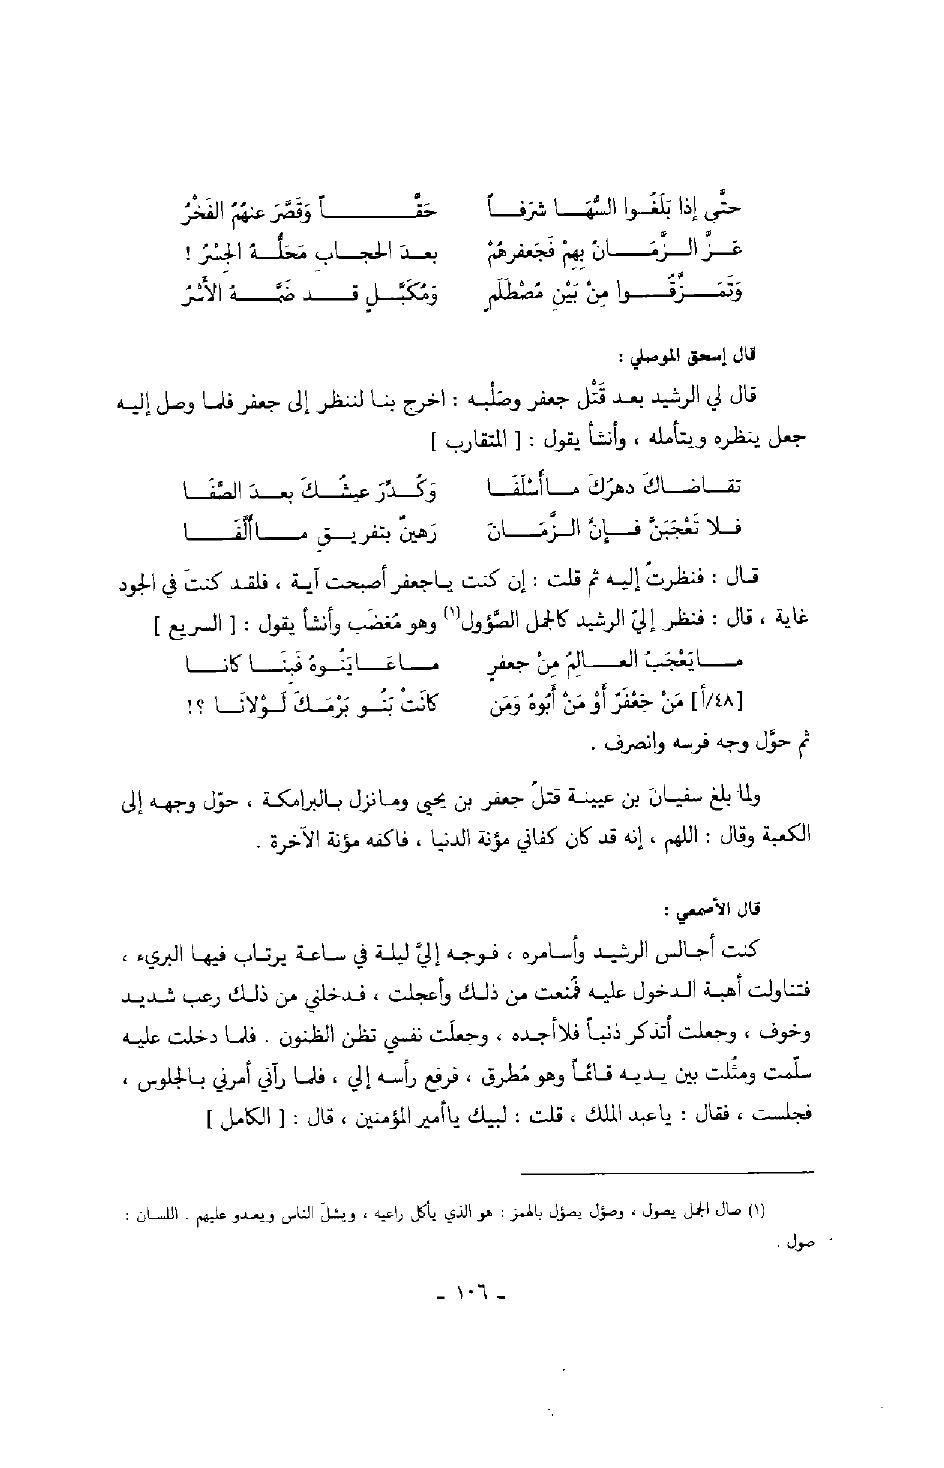 حتَّى إذا بَلَغُوا السُّهَا شرَفاً حقّاً وقَصَّرَ عنهُمُ الفَخْرُ
عَزَّ الزَّمَانُ بهِمْ فَجَعفرهُمْ بعدَ الحجابِ مَحَلُّهُ الجَسْرُ !
وَتَمَزَّقُوا مِنْ بَيْنِ مُصْطَلَمٍ وَمُكَبَّلٍ قد ضَمَّهُ الأسْرُ
قال إسحق الموصلي :
قال لي الرشيد بعد قَتْل جعفر وصَلْبه : اخرج بنا لننظر إلى جعفر فلما وصل إليه
جعل ينظره ويتأمله ، وأنشأ يقول : [ المتقارب ]
تقاضاكَ دهرُكَ ماأسْلَفَا وَكُدِّرَ عيشُكَ بعدَ الصَّفَا
فلا تَعْجَبَنَّ فإنَّ الزَّمَانَ رَهينٌ بتفريقِ ماألَّفَا
قال : فنظرتُ إليه ثم قلت : إن كنت ياجعفر أصبحت آية ، فلقد كنتَ في الجود
غاية ، قال : فنظر إليّ الرشيد كالجمل الصَّؤول(١) وهو مُغضَب وأنشأ يقول : [ السريع ]
مايَعْجَبُ العالِمُ مِنْ جعفرٍ ماعَايَنُوهُ فَبِنَا كانا
[٤٨/أ] مَنْ جَعْفَرٌ أوْ مَنْ أَبُوهُ وَمَن كانَتْ بَنُو بَرْمَكَ لَوْلاَنَا ؟!
ثم حوَّل وجه فرسه وانصرف .
ولما بلغ سفيانَ بن عيينة قتلُ جعفر بن يحيى ومانزل بالبرامكة ، حوّل وجهه إلى
الكعبة وقال : اللهم ، إنه قد كان كفاني مؤنة الدنيا ، فاكفه مؤنة الآخرة .
قال الأصمعي :
كنت أجالس الرشيد وأسامره ، فوجه إليَّ ليلة في ساعة يرتاب فيها البريء ،
فتناولت أهبة الدخول عليه فمُنعت من ذلك وأعجلت ، فدخلني من ذلك رعب شديد
وخوف ، وجعلت أتذكر ذنباً فلاأجده ، وجعلَت نفسي تظن الظنون . فلما دخلت عليه
سلّمت ومثُلت بين يديه قائماً وهو مُطرق ، فرفع رأسه إلي ، فلما رآني أمرني بالجلوس ،
فجلست ، فقال : ياعبد الملك ، قلت : لبيك ياأمير المؤمنين ، قال : [ الكامل ]
(١) صال الجمل يصول ، وصؤل يصؤل بالهمز : هو الذي يأكل راعيه ، ويشلّ الناس ويعدو عليهم . اللسان :
صول .
ـ ١٠٦ ـ